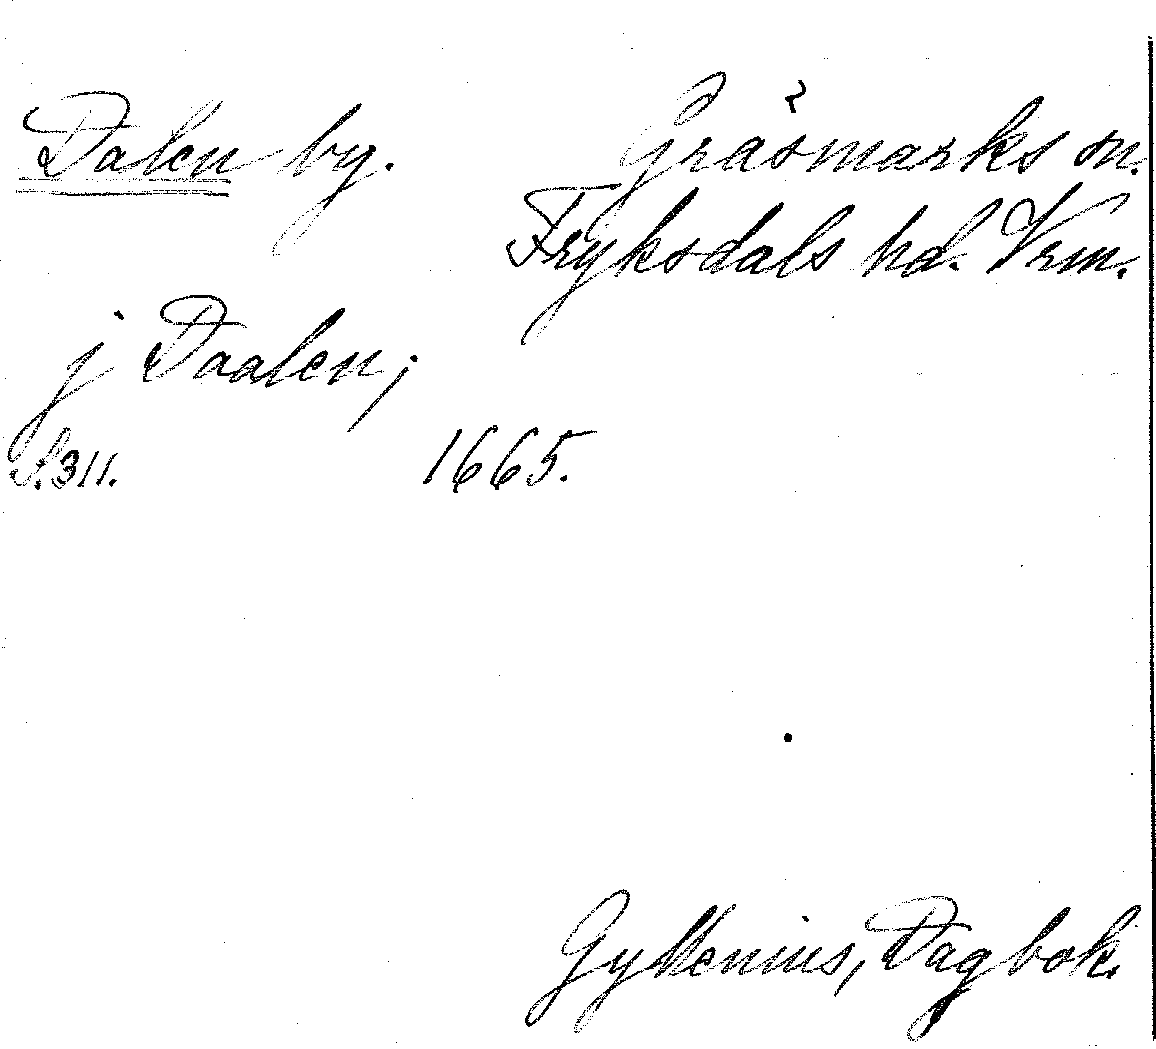 Dalen by. Gräsmarks sn.
Fryksdals hd. Vrm.
j Daalen;
S. 311. 1665.
Gyllenius, Dagbok.